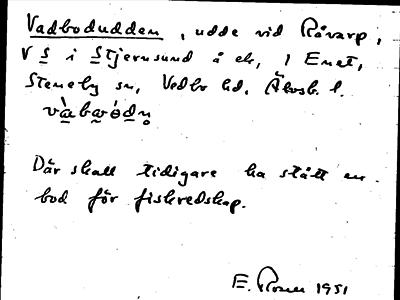 Vadbodudden, udde vid Råvarp,
V S i Stjernsund å ek, 1 Enet,
Steneby sn, Vedbo hd. Älvsb. l.
Där skall tidigare ha stått en
bod för fiskredskap.
E. 1951